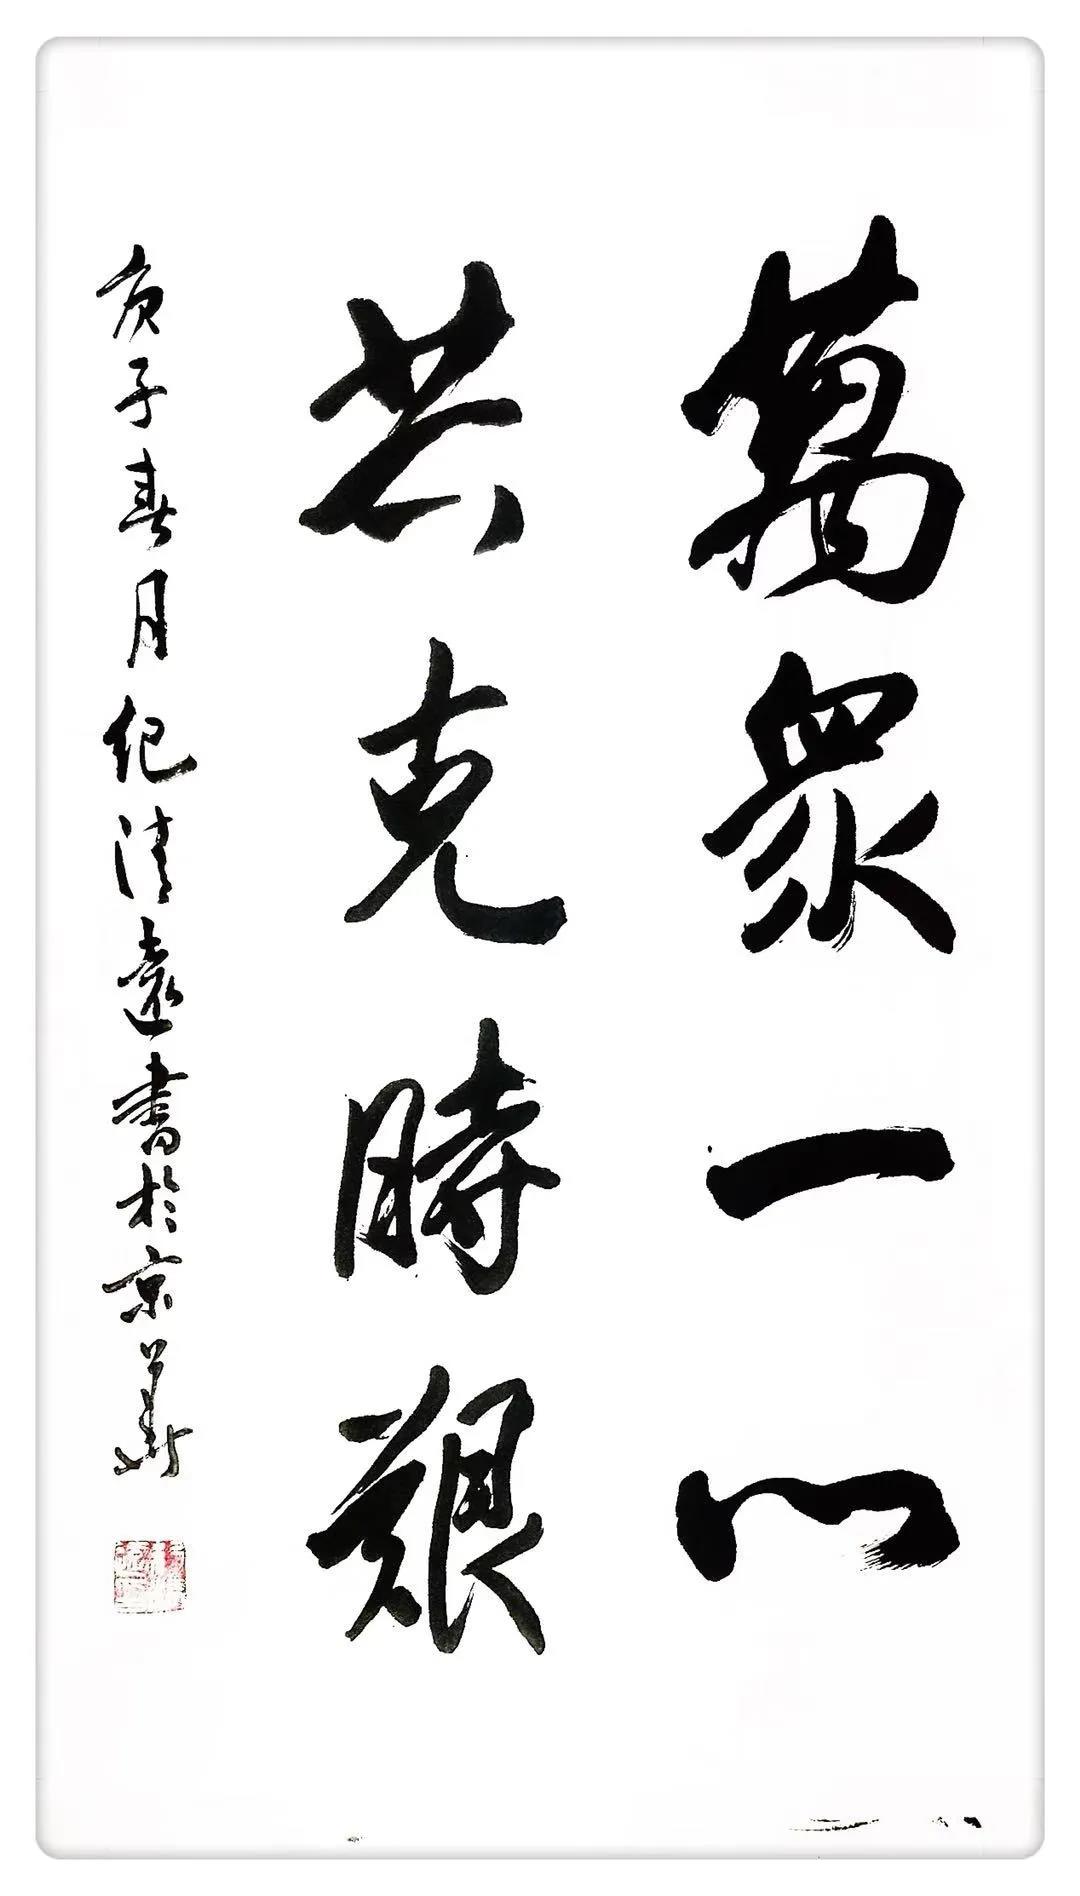 萬眾一心
共克時艱
庚子春月紀清遠書於京華